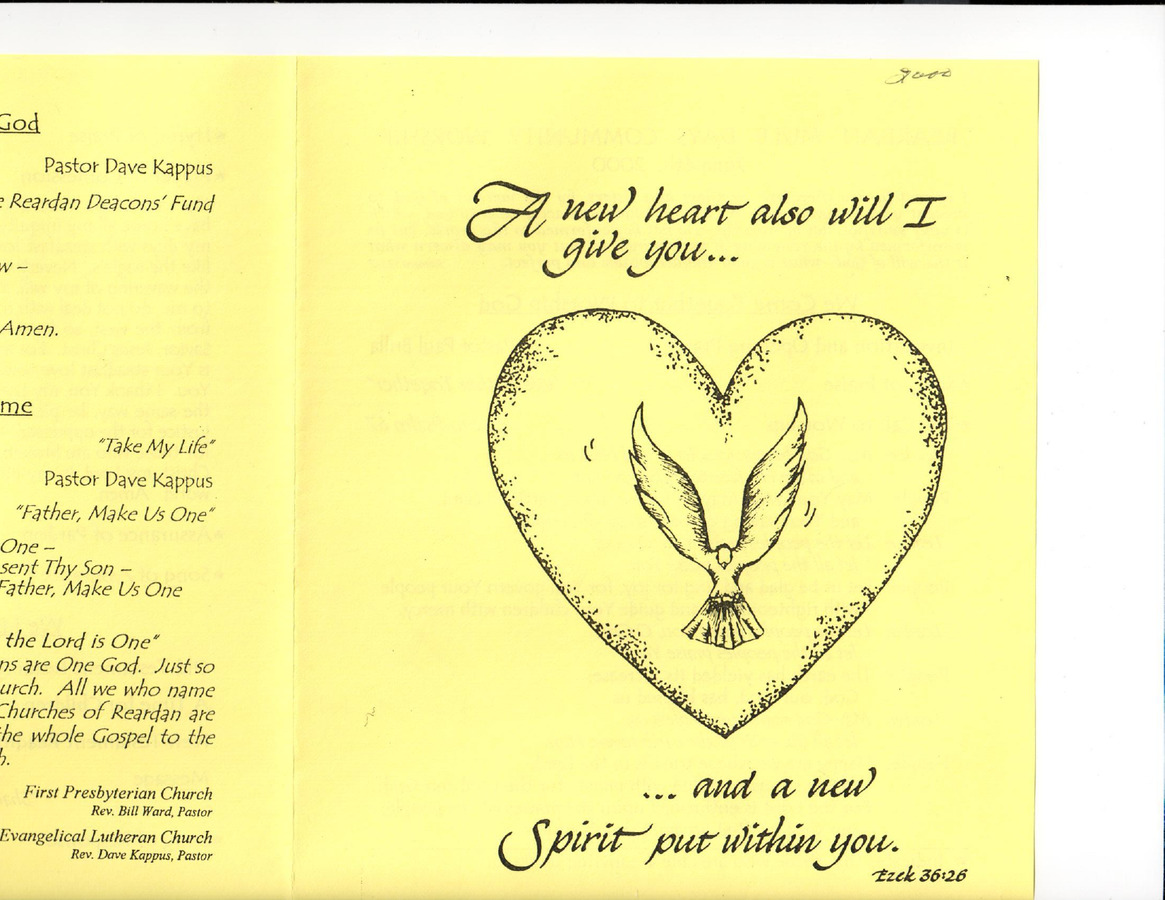 God
Pastor Dave Kappus
Reardan Deacons' Fund
w –
Amen.
me
"Take My Life"
Pastor Dave Kappus
"Father, Make Us One"
One –
sent Thy Son –
Father, Make Us One
the Lord is One"
ns are One God. Just so
urch. All we who name
Churches of Reardan are
the whole Gospel to the
h.
First Presbyterian Church
Rev. Bill Ward, Pastor
Evangelical Lutheran Church
Rev. Dave Kappus, Pastor
A new heart also will I
give you...
... and a new
Spirit put within you.
Ezek 36:26